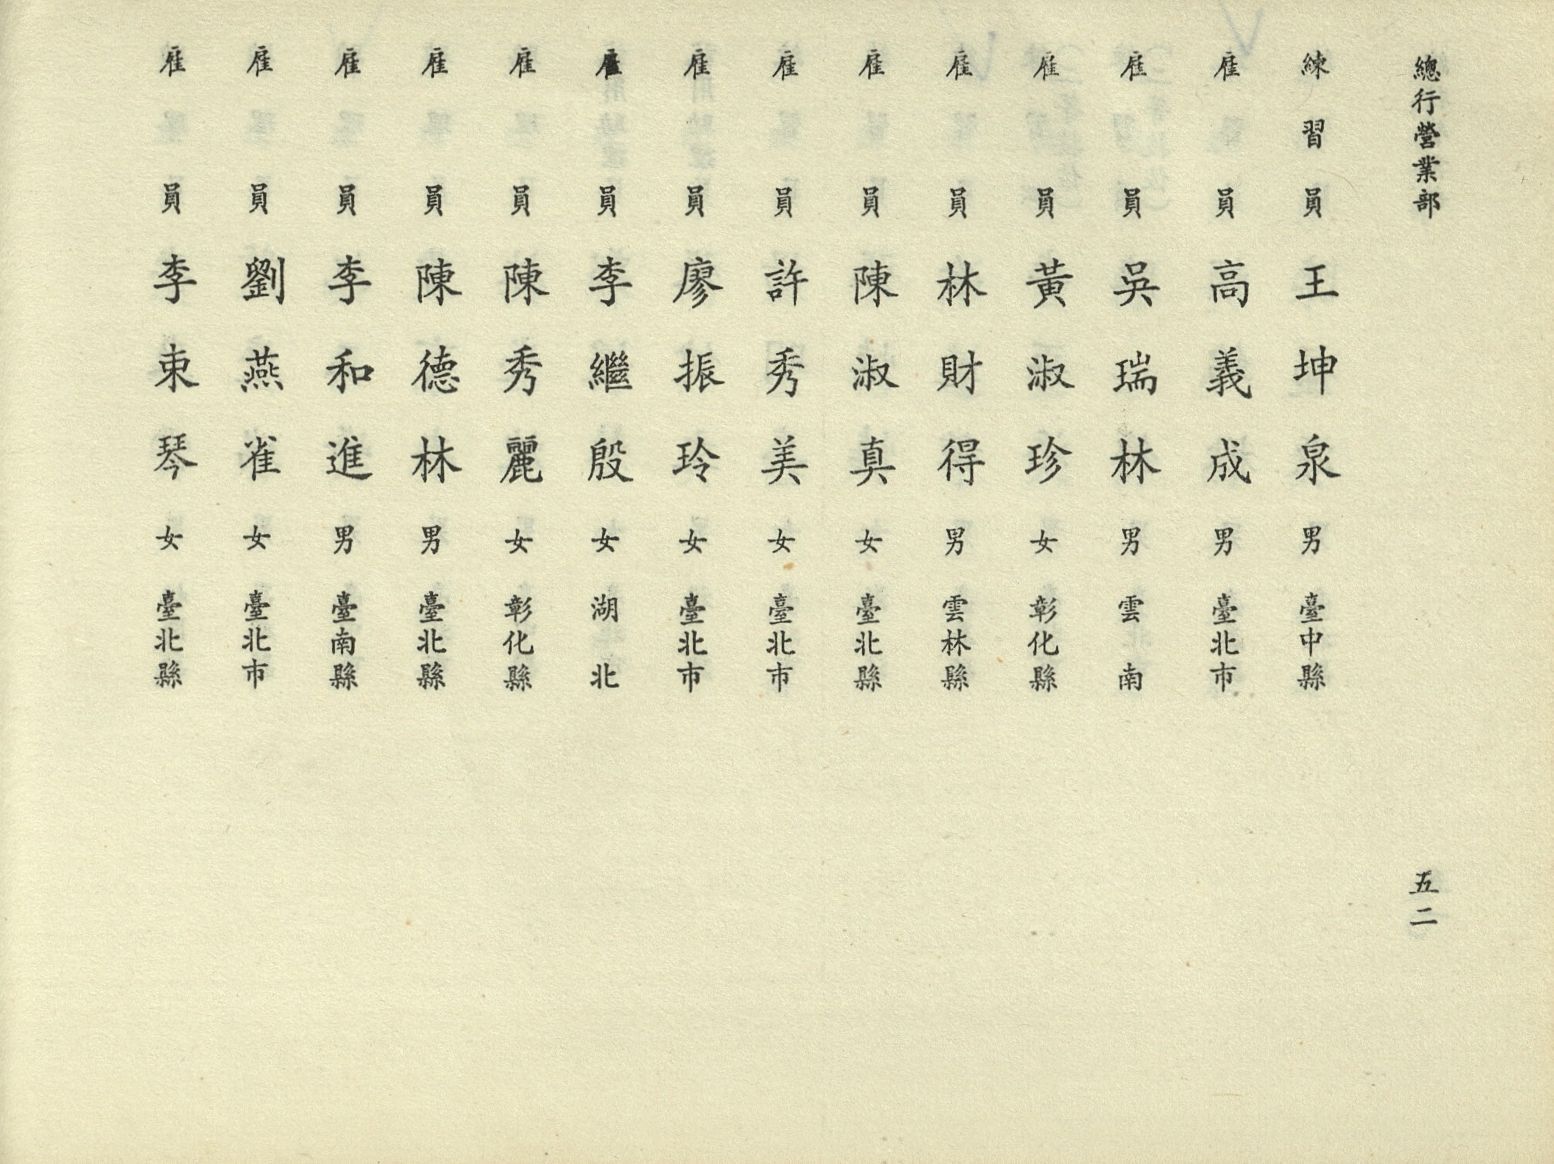 總行營業部 五二
練習員 王坤泉 男 臺中縣
雇員 高義成 男 臺北市
雇員 吳瑞林 男 雲南
雇員 黃淑珍 女 彰化縣
雇員 林財得 男 雲林縣
雇員 陳淑真 女 臺北縣
雇員 許秀美 女 臺北市
雇員 廖振玲 女 臺北市
雇員 李繼殷 女 湖北
雇員 陳秀麗 女 彰化縣
雇員 陳德林 男 臺北縣
雇員 李和進 男 臺南縣
雇員 劉燕雀 女 臺北市
雇員 李束琴 女 臺北縣